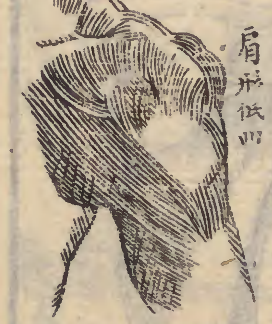 肩形低凹